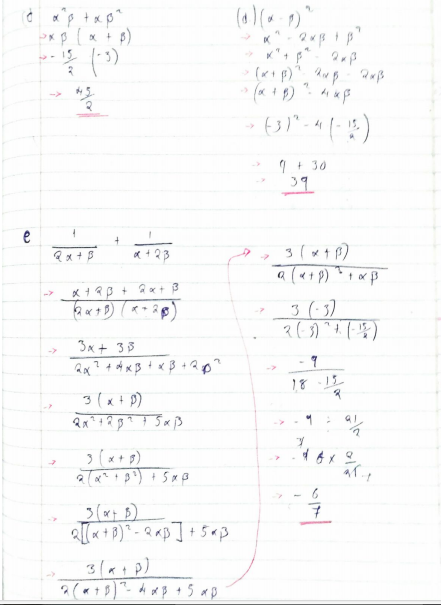 (c) α²β + αβ²
→ αβ (α + β)
→ - 15/2 (-3)
→ 45/2
(d) (α - β)²
→ α² - 2αβ + β²
→ α² + β² - 2αβ
→ (α+β)² - 2αβ - 2αβ
→ (α + β)² - 4αβ
→ (-3)² - 4 (- 15/2)
→ 9 + 30
→ 39
e 1/(2α+β) + 1/(α+2β)
→ (α+2β + 2α+β)/((2α+β) (α+2β))
→ (3α + 3β)/(2α² + 4αβ + αβ + 2β²)
→ 3(α+β)/(2α² + 2β² + 5αβ)
→ 3(α+β)/(2(α² + β²) + 5αβ)
→ 3(α+β)/(2[(α+β)² - 2αβ] + 5αβ)
→ 3(α+β)/(2(α+β)² - 4αβ + 5αβ)
→ 3(α+β)/(2(α+β)² + αβ)
→ 3(-3)/(2(-3)² + (-15/2))
→ -9/(18 - 15/2)
→ -9 ÷ 21/2
→ - 6/7